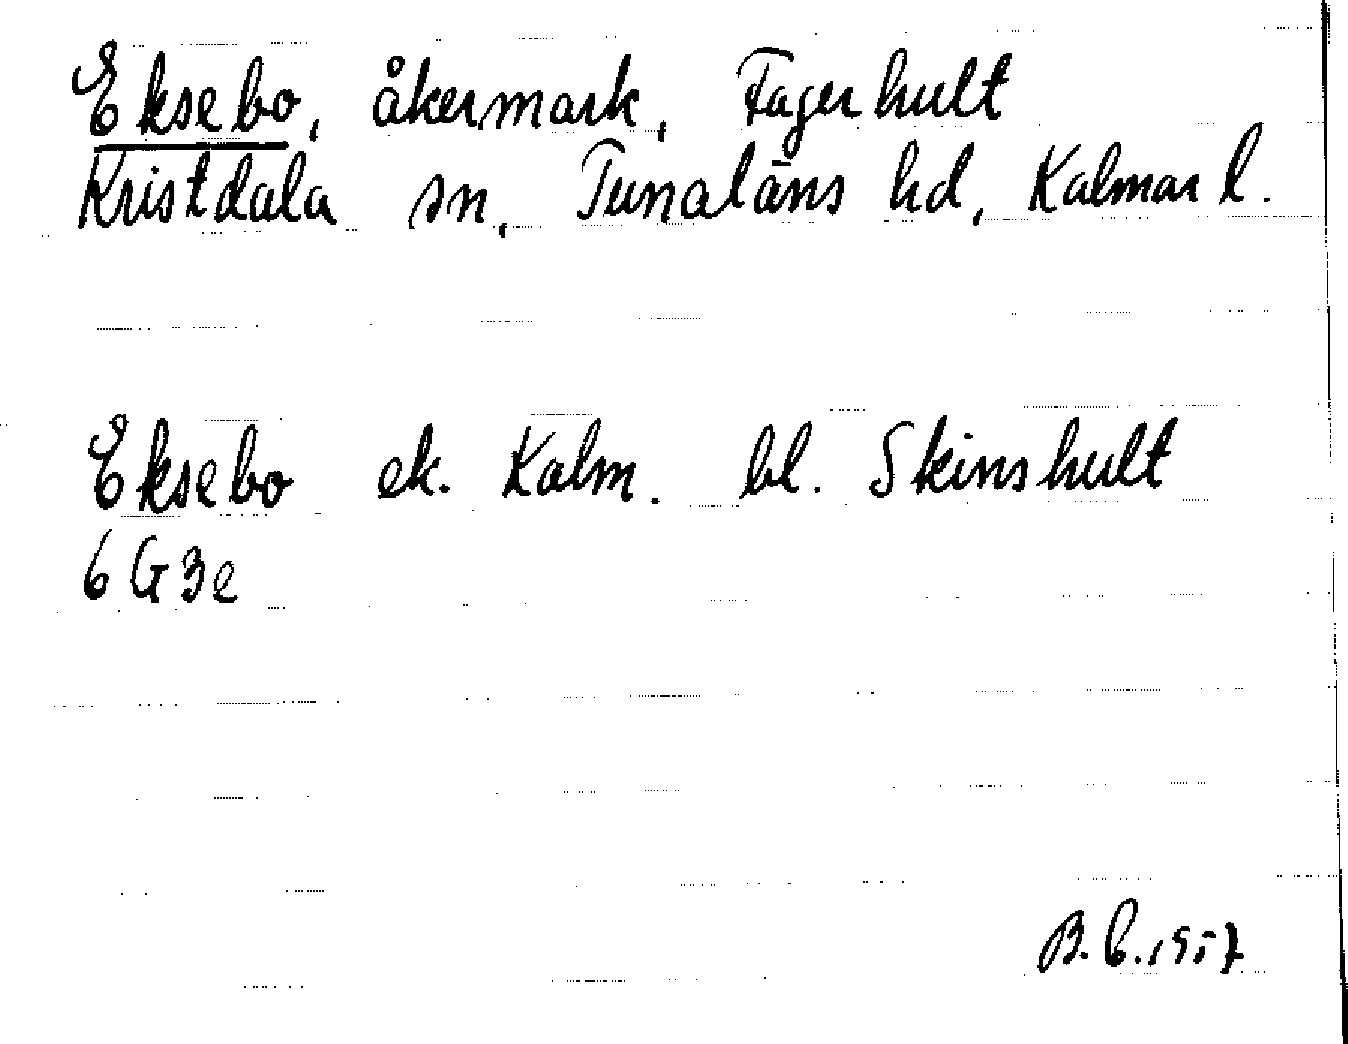 Eksebo, åkermark, Fagerhult
Kristdala sn, Tunaläns hd, Kalmar l.
Eksebo ek. Kalm. bl. Skinshult
6 G 3e
B.C. 1957